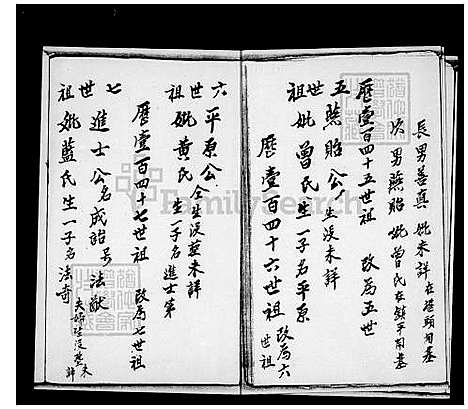 長男善興 妣未詳 在港頭旬墓
次男燕貽 妣曾氏 在鎮平旬墓
歷壹百四十五世祖 改為五世
五世祖 燕貽公 生沒未詳
妣曾氏 生一子名平原
歷壹百四十六世祖 改為六世祖
六世祖 平原公 仝生沒墓未詳
妣黃氏 生一子名進士第
歷壹百四十七世祖 改為七世祖
七世祖 進士公 名成詔 号法猷 夫婦生沒墓未詳
妣藍氏 生一子名法奇
FamilySearch